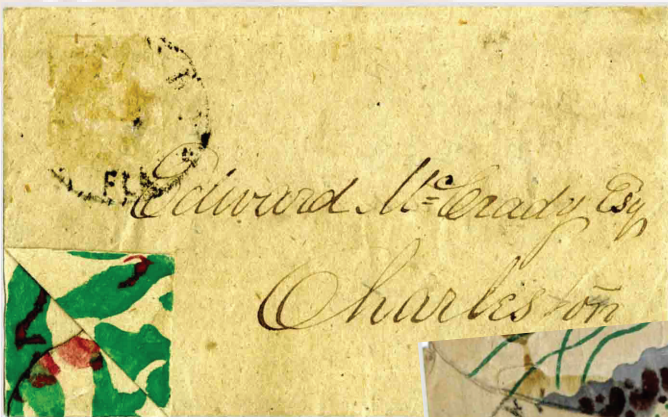 FLA
Edward Mc Crady Esq
Charleston